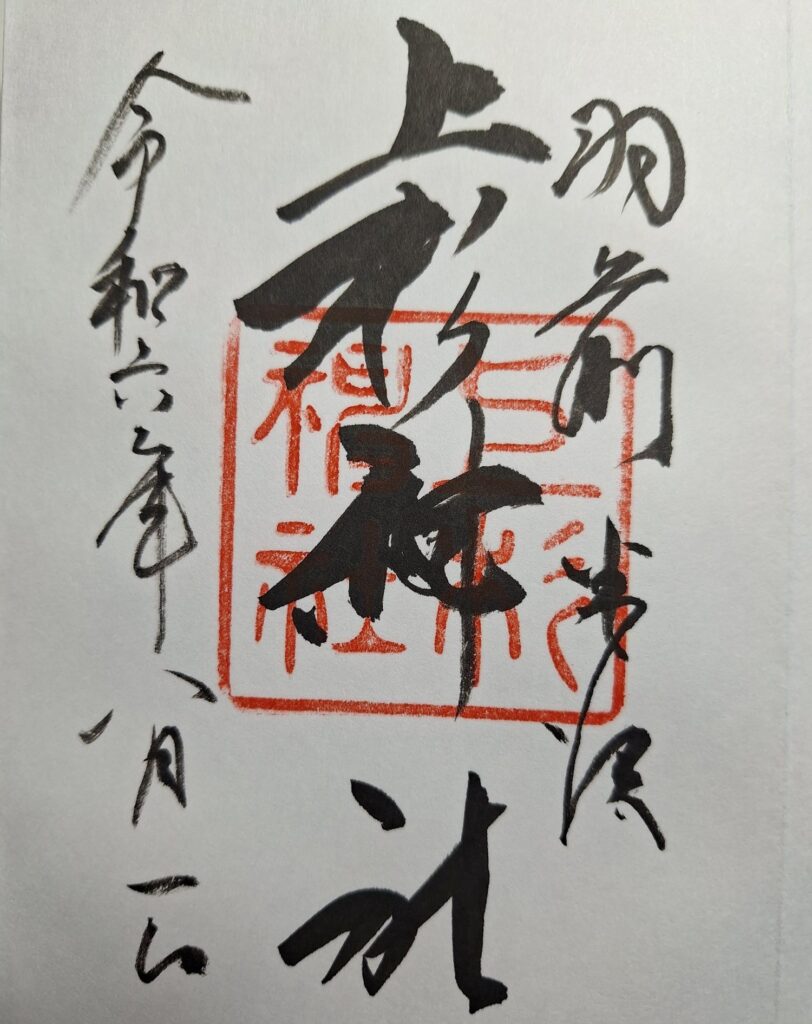 羽前米沢
上杉神社
上杉神社
令和六年八月一日